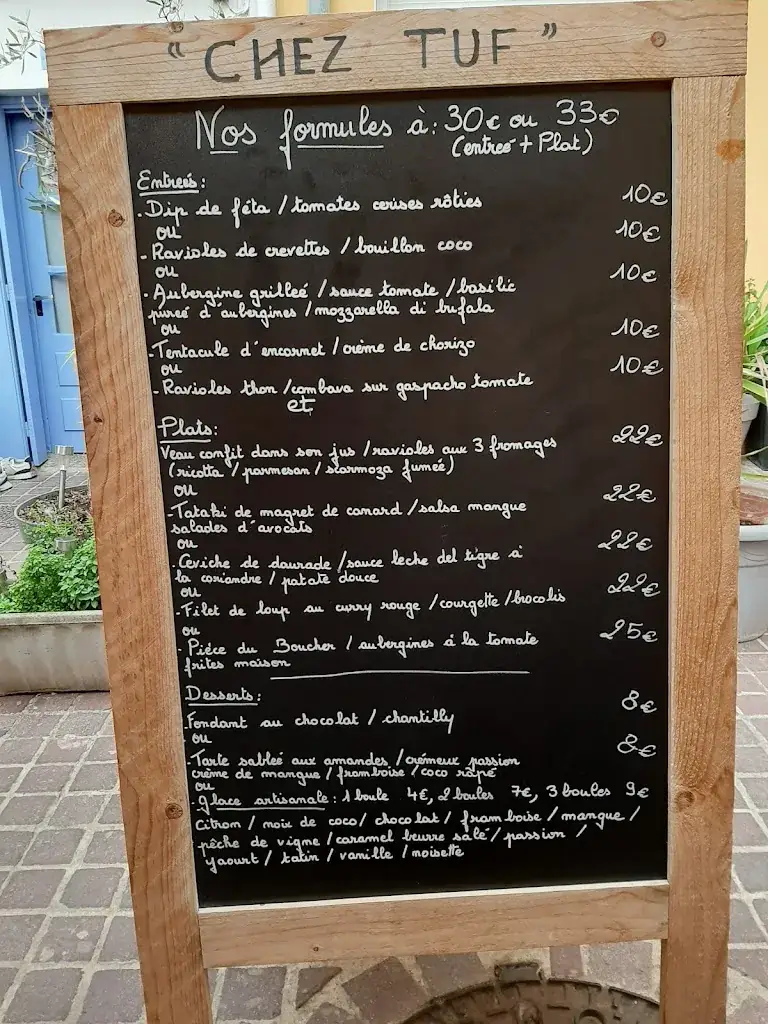 " CHEZ TUF "
Nos formules à : 30€ ou 33€
(entreé + Plat)
Entreés :
- Dip de féta / tomates cerises rôties 10€
ou
- Ravioles de crevettes / bouillon coco 10€
ou
- Aubergine grilleé / sauce tomate / basilic 10€
pureé d'aubergines / mozzarella di bufala
ou
- Tentacule d'encornet / crème de chorizo 10€
ou
- Ravioles thon / combava sur gaspacho tomate 10€
et
Plats :
Veau confit dans son jus / ravioles aux 3 fromages 22€
(ricotta / parmesan / scarmoza fumeé)
ou
- Tataki de magret de canard / salsa mangue 22€
salades d'avocats
ou
- Ceviche de daurade / sauce leche del tigre à 22€
la coriandre / patate douce
ou
- Filet de loup au curry rouge / courgette / brocolis 22€
ou
- Piéce du Boucher / aubergines à la tomate 25€
frites maison
Desserts :
- Fondant au chocolat / chantilly 8€
ou
- Tarte sableé aux amandes / crémeux passion 8€
crème de mangue / framboise / coco râpé
ou
- Glace artisanale : 1 boule 4€, 2 boules 7€, 3 boules 9€
Citron / noix de coco / chocolat / framboise / mangue /
pêche de vigne / caramel beurre salé / passion /
yaourt / tatin / vanille / noisette